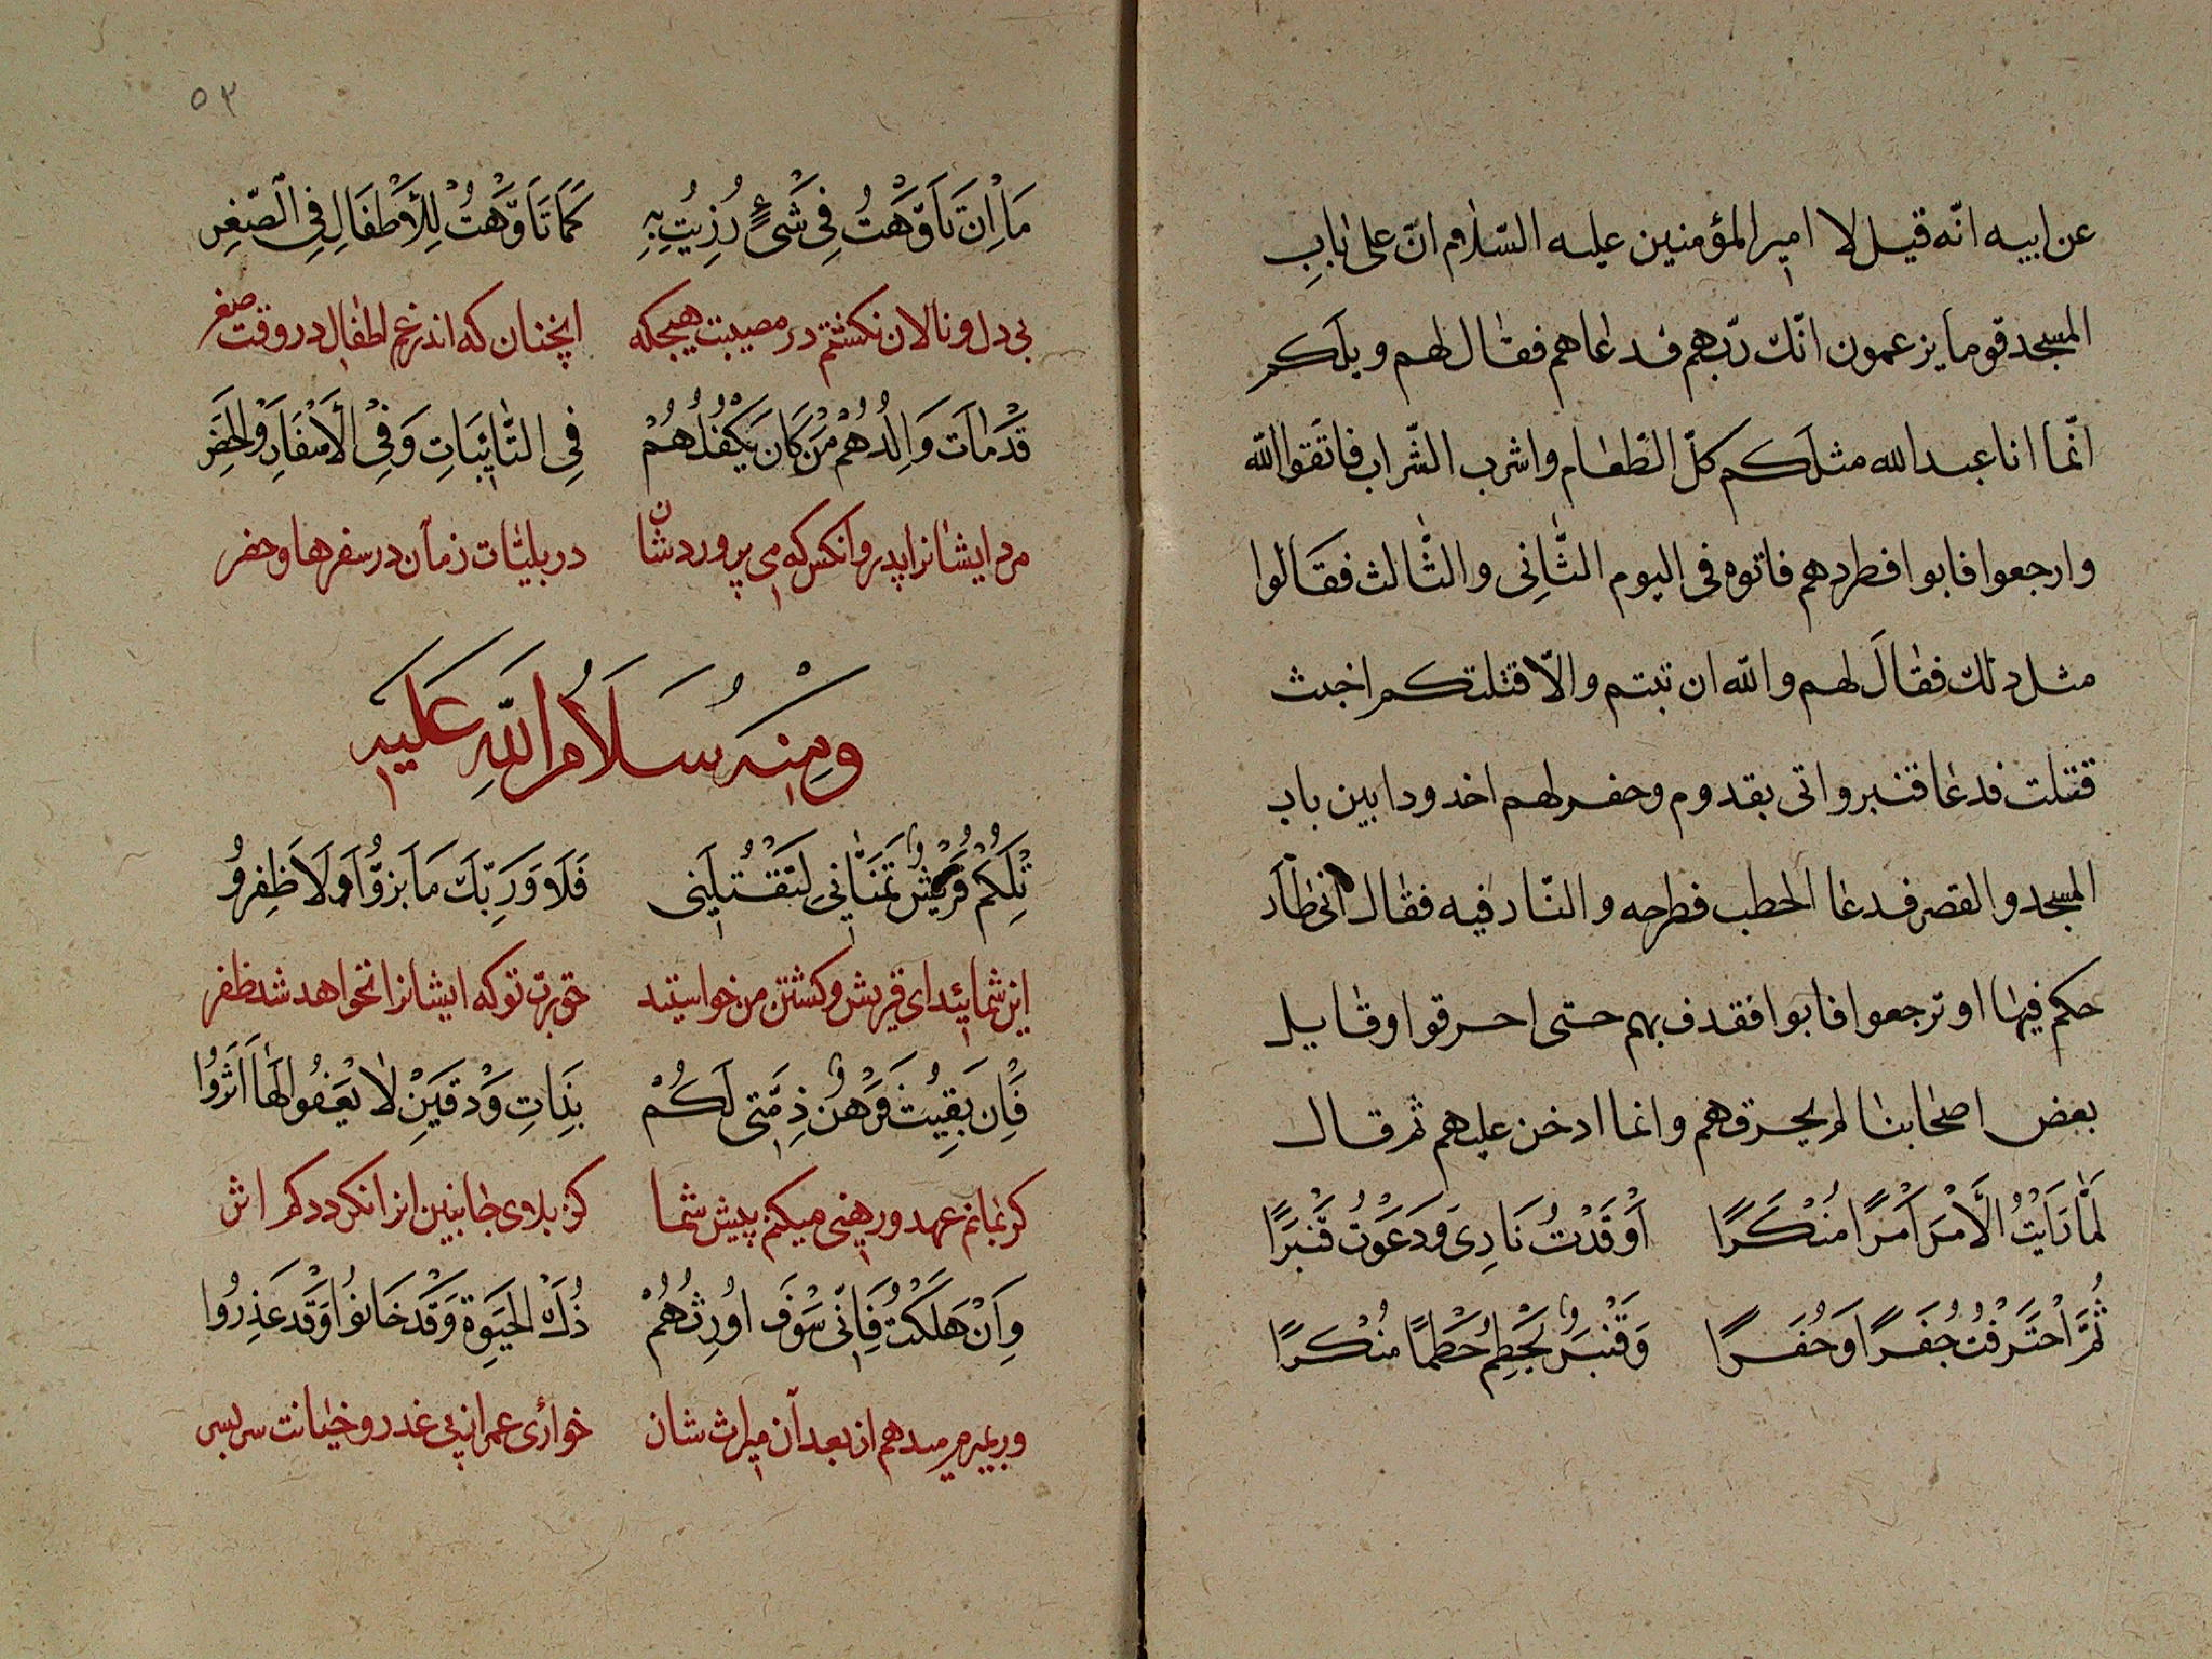 عن ابيه انّه قيل لا امير المؤمنين عليه السّلام انّ على باب
المسجد قوما يزعمون انّك ربّهم فدعاهم فقال لهم ويلكم
انّما انا عبد الله مثلكم كلّ الطّعام واشرب الشّراب فاتقوا الله
وارجعوا فابوا فطردهم فاتوه فى اليوم الثّانِى والثّالث فقالوا
مثل ذلك فقالَ لهم والله ان تبتم والّا قتلتكم اخبث
قتلت فدعا قنبر واتى بقدوم وحفر لهم اخدودا بين باب
المسجد والقصر فدعا الحطب فطرحه والنّار فيه فقال انى طارد
حكم فيها او ترجعوا فابوا فقدف بهم حتى احرقوا وقايل
بعض اصحابنا لم يحرقهم وانما ادخن عليهم ثم قال
لَمّا رَاَيْتُ الْاَمْرَ اَمْرًا مُنْكَرًا اَوْقَدْتُ نَارِى وَدَعَوْتُ قَنْبَرًا
ثُمَّ احْتَرَفْتُ حُفَرًا وَحُفَرًا وَقَنْبَرٌ يَحْطِمُ حَطْمًا مُنْكَرًا
٥٣
مَا اِنْ تَاَوَّهْتُ فِى شَىْءٍ رُزِيتُ بِهِ كَمَا تَاَوَّهْتُ لِلْاَطْفَالِ فِى الصّغِرِ
بى دل و نالان نكشتم در مصيبت هيچكه انچنان كه اندر غم اطفال در وقت صغر
قَدْ مَاتَ وَالِدُهُمْ مَنْ كَانَ يَكْفُلُهُمْ فِى النّائِبَاتِ وَفِى الْاَسْفَارِ وَالْحَضَرِ
مرد ايشانرا پدر وانكس كه مى پروردشان در بليّات زمان در سفرها و حضر
وَمِنْهُ سَلَامُ اللّهِ عَلَيْهِ
تِلْكُمْ قُرَيْشٌ تَمَنَّانِى لِتَقْتُلَنِى فَلَا وَرَبِّكَ مَا بَزُّوا وَلَا ظَفِرُو
اين شمائيد اى قريش و كشتن من خواستيد حق بربّ تو كه ايشانرا نخواهد شد ظفر
فَاِنْ بَقِيتُ فَرَهْنٌ ذِمَّتِى لَكُمْ بِذَاتِ وَدْقَيْنِ لَا يَعْفُو لَهَا اَثَرُوا
كر بمانم عهد و رهنى ميكنم پيش شما كز بلاوى جانبين انرا نكردد كم اثر
وَاِنْ هَلَكْتُ فَاِنّى سَوْفَ اُورِثُهُمْ ذُلَّ الْحَيٰوةِ وَقَدْ خَانُوا وَقَدْ غَدِرُوا
ور بميرم ميدهم از بعد آن ميراث شان خوارى عمر از پى غدر و خيانت سربسر